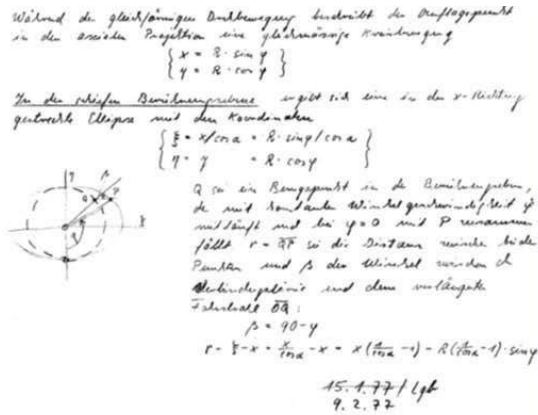 Während der gleichförmigen Drehbewegung beschreibt der Auflagepunkt
in der axialen Projektion eine gleichmässige Kreisbewegung
{ x = R · sin φ
y = R · cos φ }
In der schiefen Berührungsebene ergibt sich eine in der x-Richtung
gestreckte Ellipse mit den Koordinaten
{ ξ = x/cos α = R · sin φ/cos α
η = y = R · cos φ }
η β Q P ξ φ
Q sei ein Bezugspunkt in der Berührungsebene,
der mit konstanter Winkelgeschwindigkeit φ̇
mitläuft und bei φ=0 mit P zusammen
fällt r = QP sei die Distanz zwischen beiden
Punkten und β der Winkel zwischen
Verbindungslinie und dem verlängerten
Fahrstrahl OQ:
β = 90-φ
r = ξ-x = x/cos α - x = x(1/cos α -1) = R(1/cos α -1)·sin φ
15.1.77 / Lgb
9.2.77